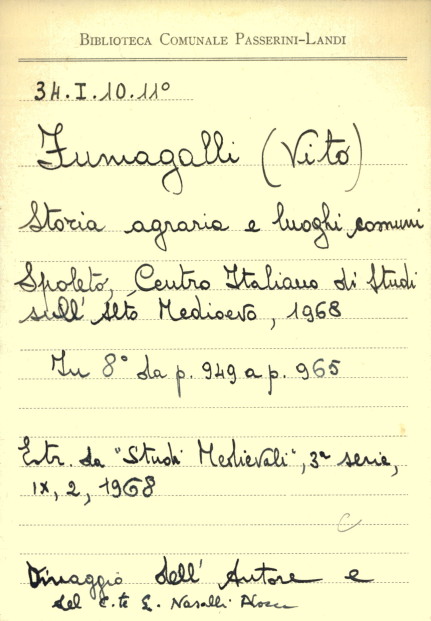 BIBLIOTECA COMUNALE PASSERINI-LANDI
34.I.10.11°
Fumagalli (Vito)
Storia agraria e luoghi comuni
Spoleto, Centro Italiano di Studi
sull' Alto Medioevo, 1968
In 8° da p. 949 a p. 965
Estr. da "Studi Medievali", 3ª serie,
IX, 2, 1968
C
Omaggio dell' Autore e
del C.te E. Nasalli Rocca